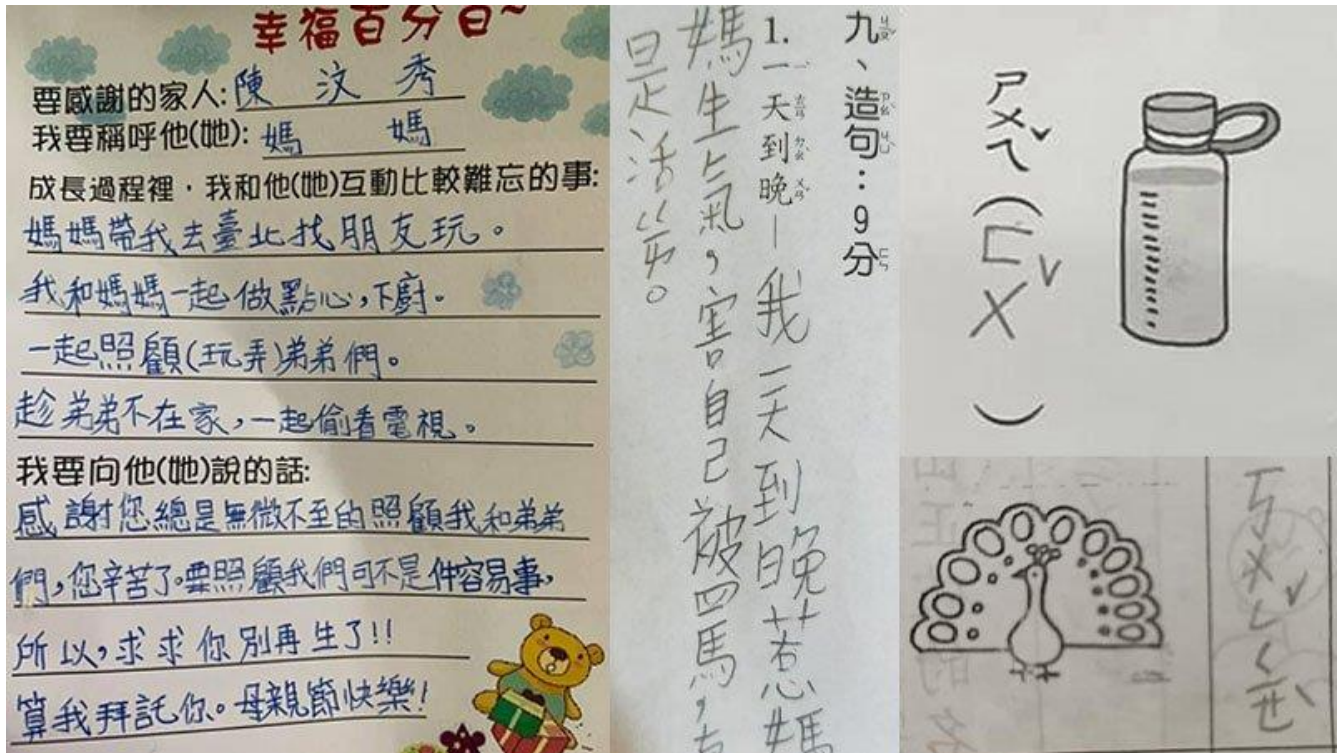 幸福百分百~
要感謝的家人:陳汶秀
我要稱呼他(她):媽媽
成長過程裡,我和他(她)互動比較難忘的事:
媽媽帶我去臺北找朋友玩。
我和媽媽一起做點心,下廚。
一起照顧(玩弄)弟弟們。
趁弟弟不在家,一起偷看電視。
我要向他(她)說的話:
感謝您總是無微不至的照顧我和弟弟
們,您辛苦了。要照顧我們可不是件容易事,
所以,求求你別再生了!!
算我拜託你。母親節快樂!
九、造句:9分
1.一天到晚—我一天到晚惹媽
媽生氣,害自己被罵,真
是活ㄍㄞ。
ㄕㄨㄟˇ(ㄈㄨˇ)
ㄎㄨㄥˇㄑㄩㄝˋ